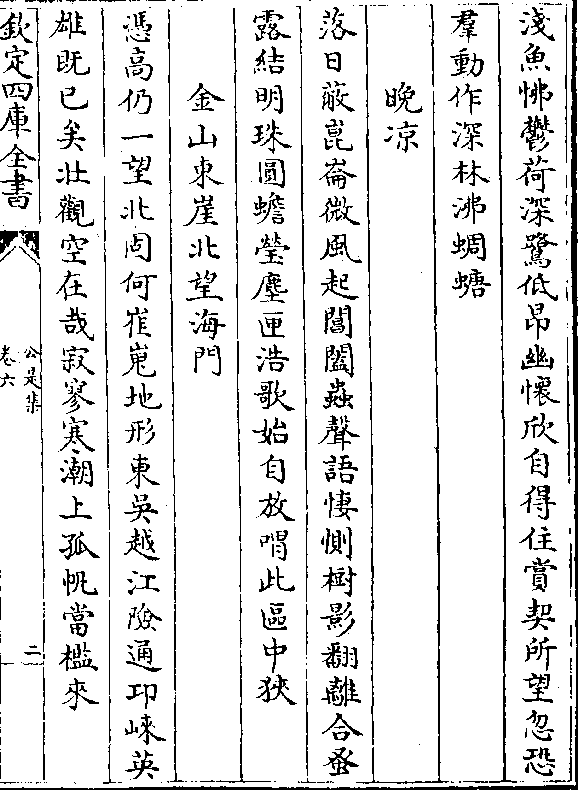 淺魚怫鬱荷深鷺低昂幽懷欣自得住賞契所望忽恐
羣動作深林沸蜩螗
晚凉
落日蔽崑崙微風起閶闔蟲聲語悽惻樹影翻離合蚤
露結明珠圓蟾瑩塵匣浩歌始自放喟此區中狹
金山東崖北望海門
憑高仍一望北固何崔嵬地形東吳越江險通卭崍英
雄既已矣壯觀空在哉寂寥寒潮上孤帆當檻來
欽定四庫全書
公是集
卷六
二